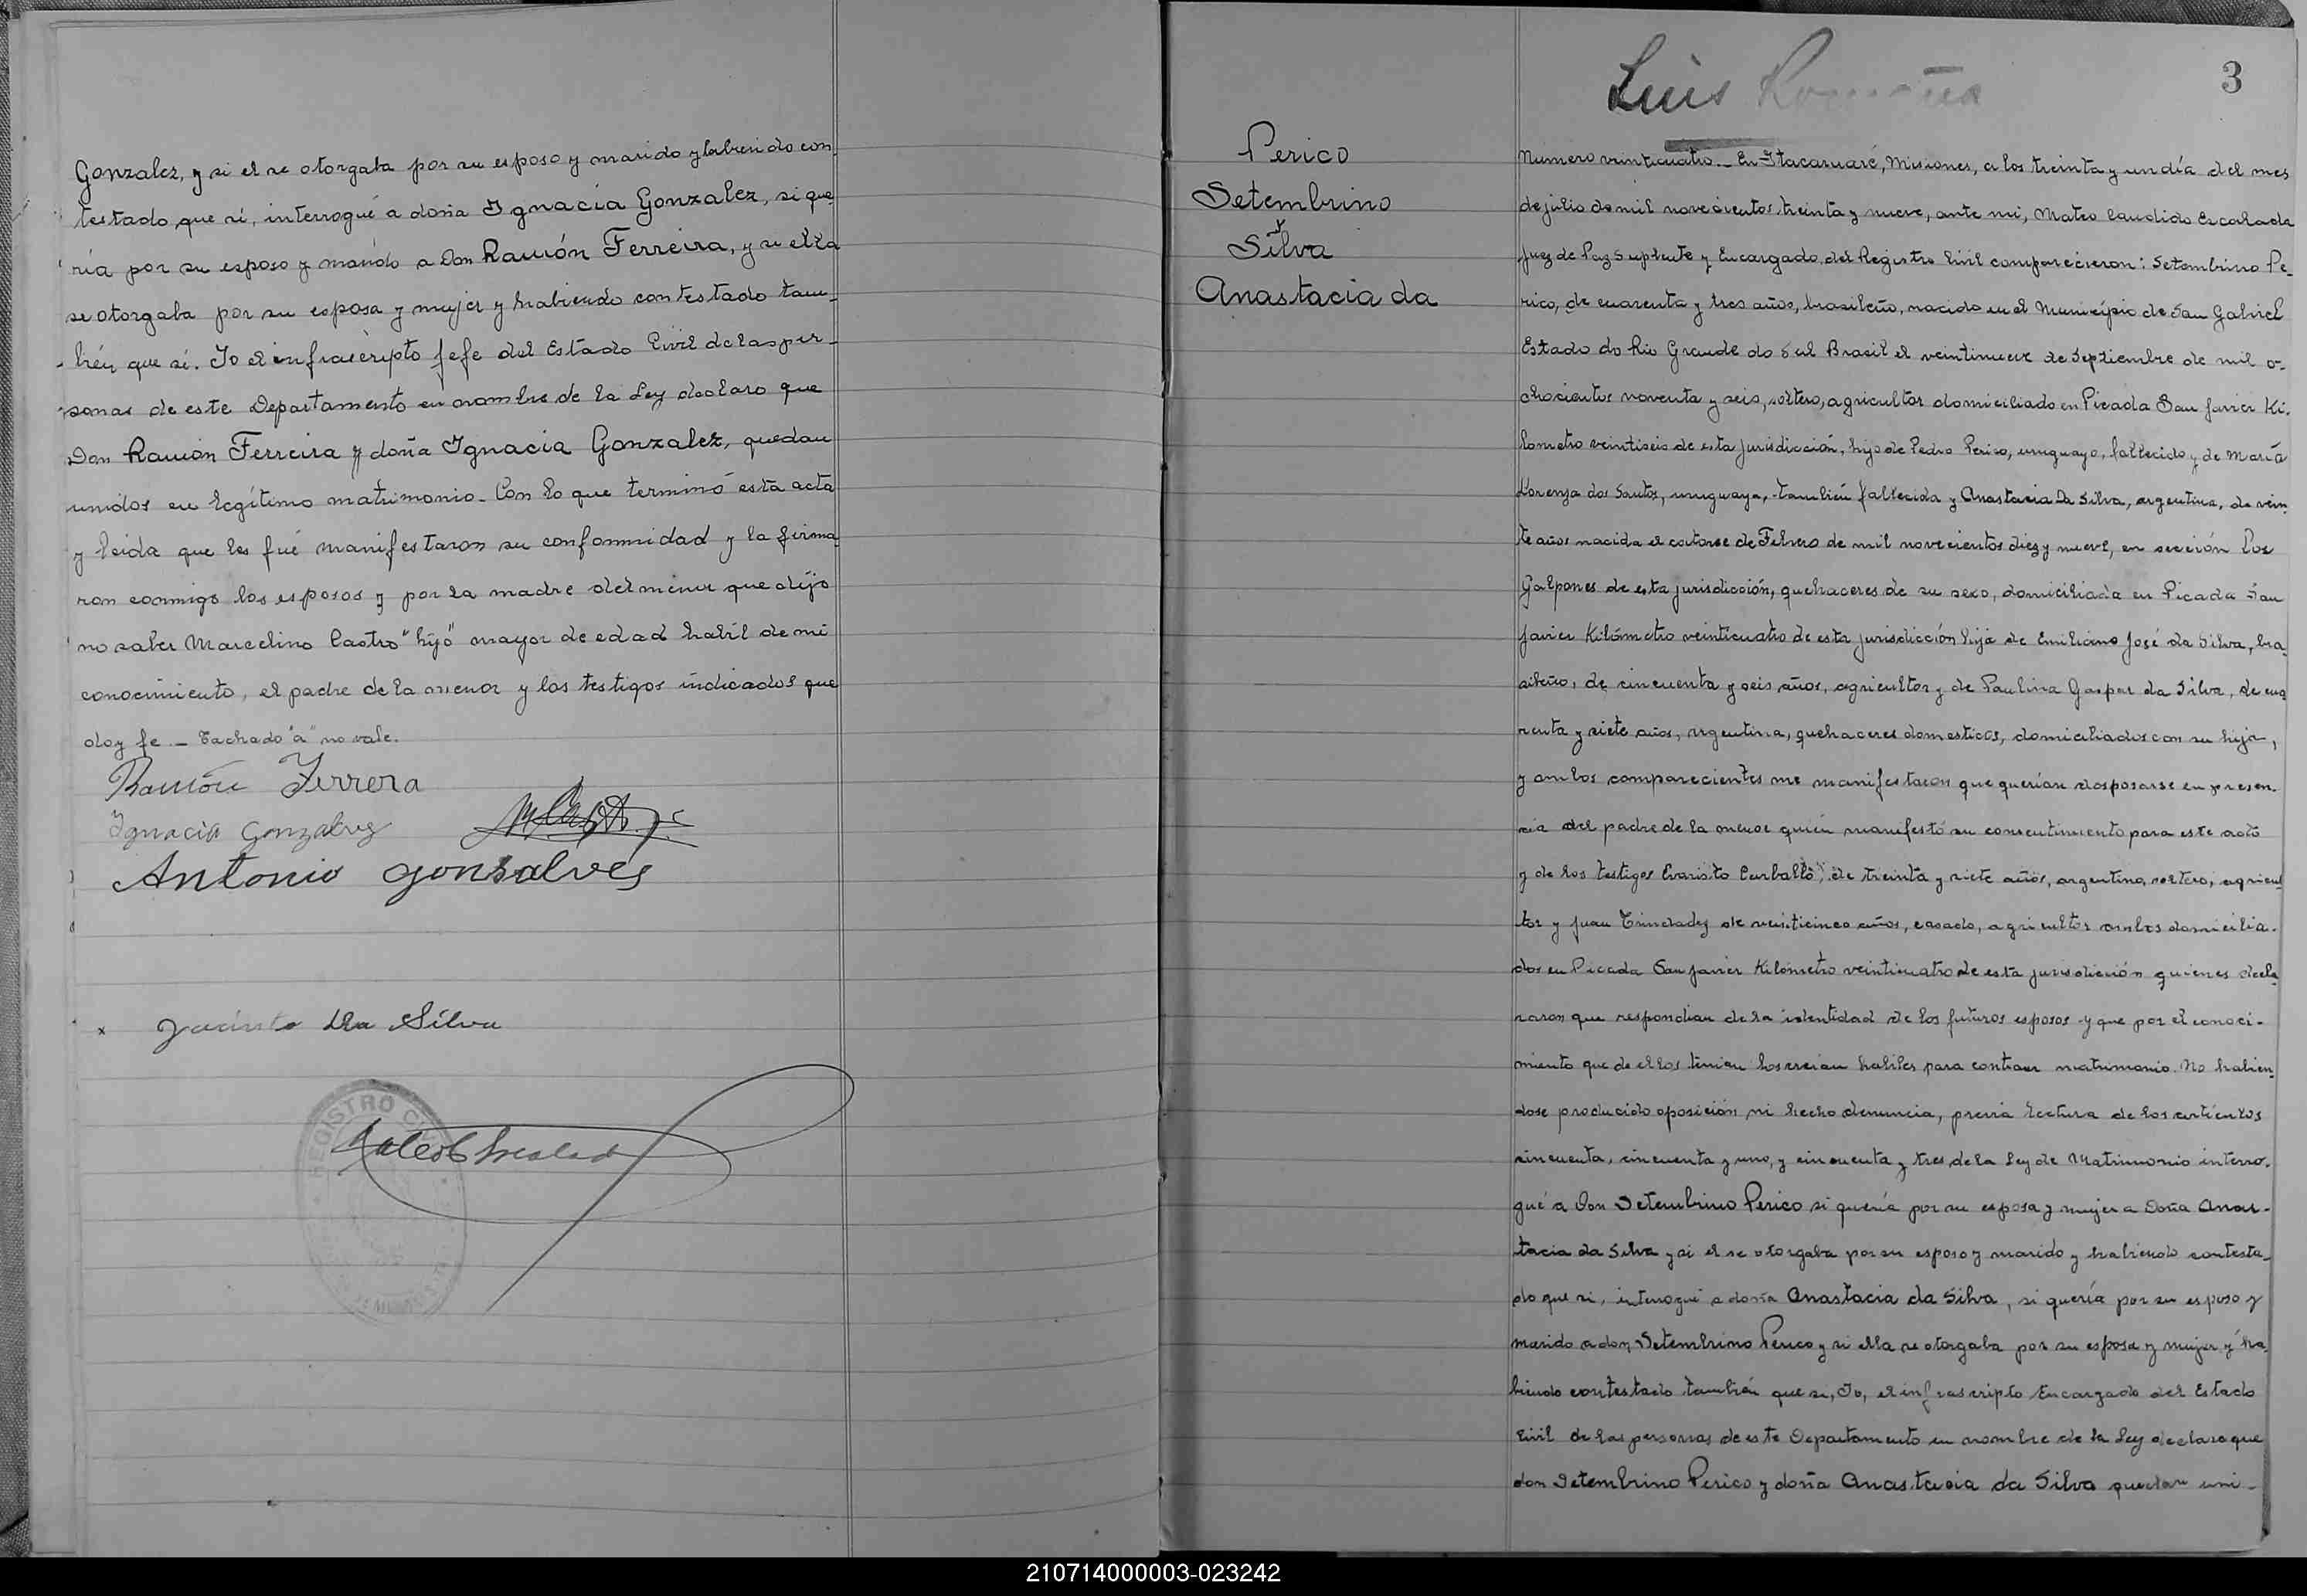 Gonzalez, y si el se otorgaba por su esposo y marido y habiendo con-
testado que si, interrogué a doña Ignacia Gonzalez, si que-
ría por su esposo y marido a Don Ramón Ferreira, y si ella
se otorgaba por su esposa y mujer y habiendo contestado tam-
bién que sí. Yo el infrascripto Jefe del Estado Civil de las per-
sonas de este Departamento en nombre de la Ley declaro que
Don Ramón Ferreira y doña Ignacia Gonzalez, quedan
unidos en legítimo matrimonio. Con lo que terminó esta acta
y leida que les fué manifestaron su conformidad y la firma-
ron conmigo los esposos y por la madre del menor que dijo
no saber Marcelino Castro "hijo" mayor de edad habil de mi
conocimiento, el padre de la menor y los testigos indicados que
doy fe. _ Tachado "a" no vale.
Ramón Ferrera
Ignacia Gonzalvez
Antonio Gonsalves
x Jacinto Da Silva
REGISTRO
Luis
3
Perico
Setembrino
y
Silva
Anastacia da
Numero veinticuatro._ En Itacaruaré, Misiones, a los treinta y un día del mes
de julio de mil novecientos treinta y nueve, ante mi, Mateo Candido Escalada
Juez de Paz Suplente y Encargado del Registro Civil comparecieron: Setembrino Pe-
rico, de cuarenta y tres años, brasileño, nacido en el Municipio de San Gabriel
Estado do Rio Grande do Sul Brasil el veintinueve de Septiembre de mil o-
chocientos noventa y seis, soltero, agricultor domiciliado en Picada San Javier Ki-
lometro veintiseis de esta jurisdicción, hijo de Pedro Perico, uruguayo, fallecido y de María
Lorenza dos Santos, uruguaya, también fallecida y Anastacia Da Silva, argentina, de vein-
te años nacida el catorse de Febrero de mil novecientos diez y nueve, en sección Los
Galpones de esta jurisdicción, quehaceres de su sexo, domiciliada en Picada San
Javier Kilómetro veinticuatro de esta jurisdicción hija de Emiliano José da Silva, bra-
sileño, de cincuenta y seis años, agricultor y de Paulina Gaspar da Silva, de cua-
renta y siete años, argentina, quehaceres domesticos, domiciliados con su hija,
y ambos comparecientes me manifestaron que querían desposarse en presen-
cia del padre de la menor quién manifestó su consentimiento para este acto
y de los testigos Evaristo Carballo, de treinta y siete años, argentino, soltero, agricul-
tor y Juan Trindadez de veinticinco años, casado, agricultor ambos domicilia-
dos en Picada San Javier Kilómetro veinticuatro de esta jurisdicción quienes decla-
raron que respondian de la identidad de los futuros esposos y que por el conoci-
miento que de ellos tenian los creian habiles para contraer matrimonio. No habien-
dose producido oposición ni hecho denuncia, previa lectura de los artículos
cincuenta, cincuenta y uno, y cincuenta y tres, de la Ley de Matrimonio interro-
gué a Don Setembrino Perico si quería por su esposa y mujer a Doña Anas-
tacia da Silva y si el se otorgaba por su esposo y marido y habiendo contesta-
do que si, interrogué a doña Anastacia da Silva, si quería por su esposo y
marido a don Setembrino Perico y si ella se otorgaba por su esposa y mujer y ha-
biendo contestado también que si, Yo, el infrascripto Encargado del Estado
Civil de las personas de este Departamento en nombre de la Ley declaro que
don Setembrino Perico y doña Anastacia da Silva quedan uni-
210714000003-023242